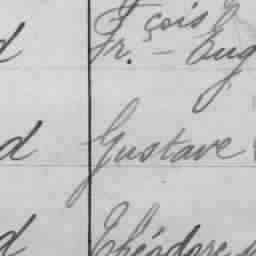 çois
d Fr. - Eug
d Gustave
d Théodore